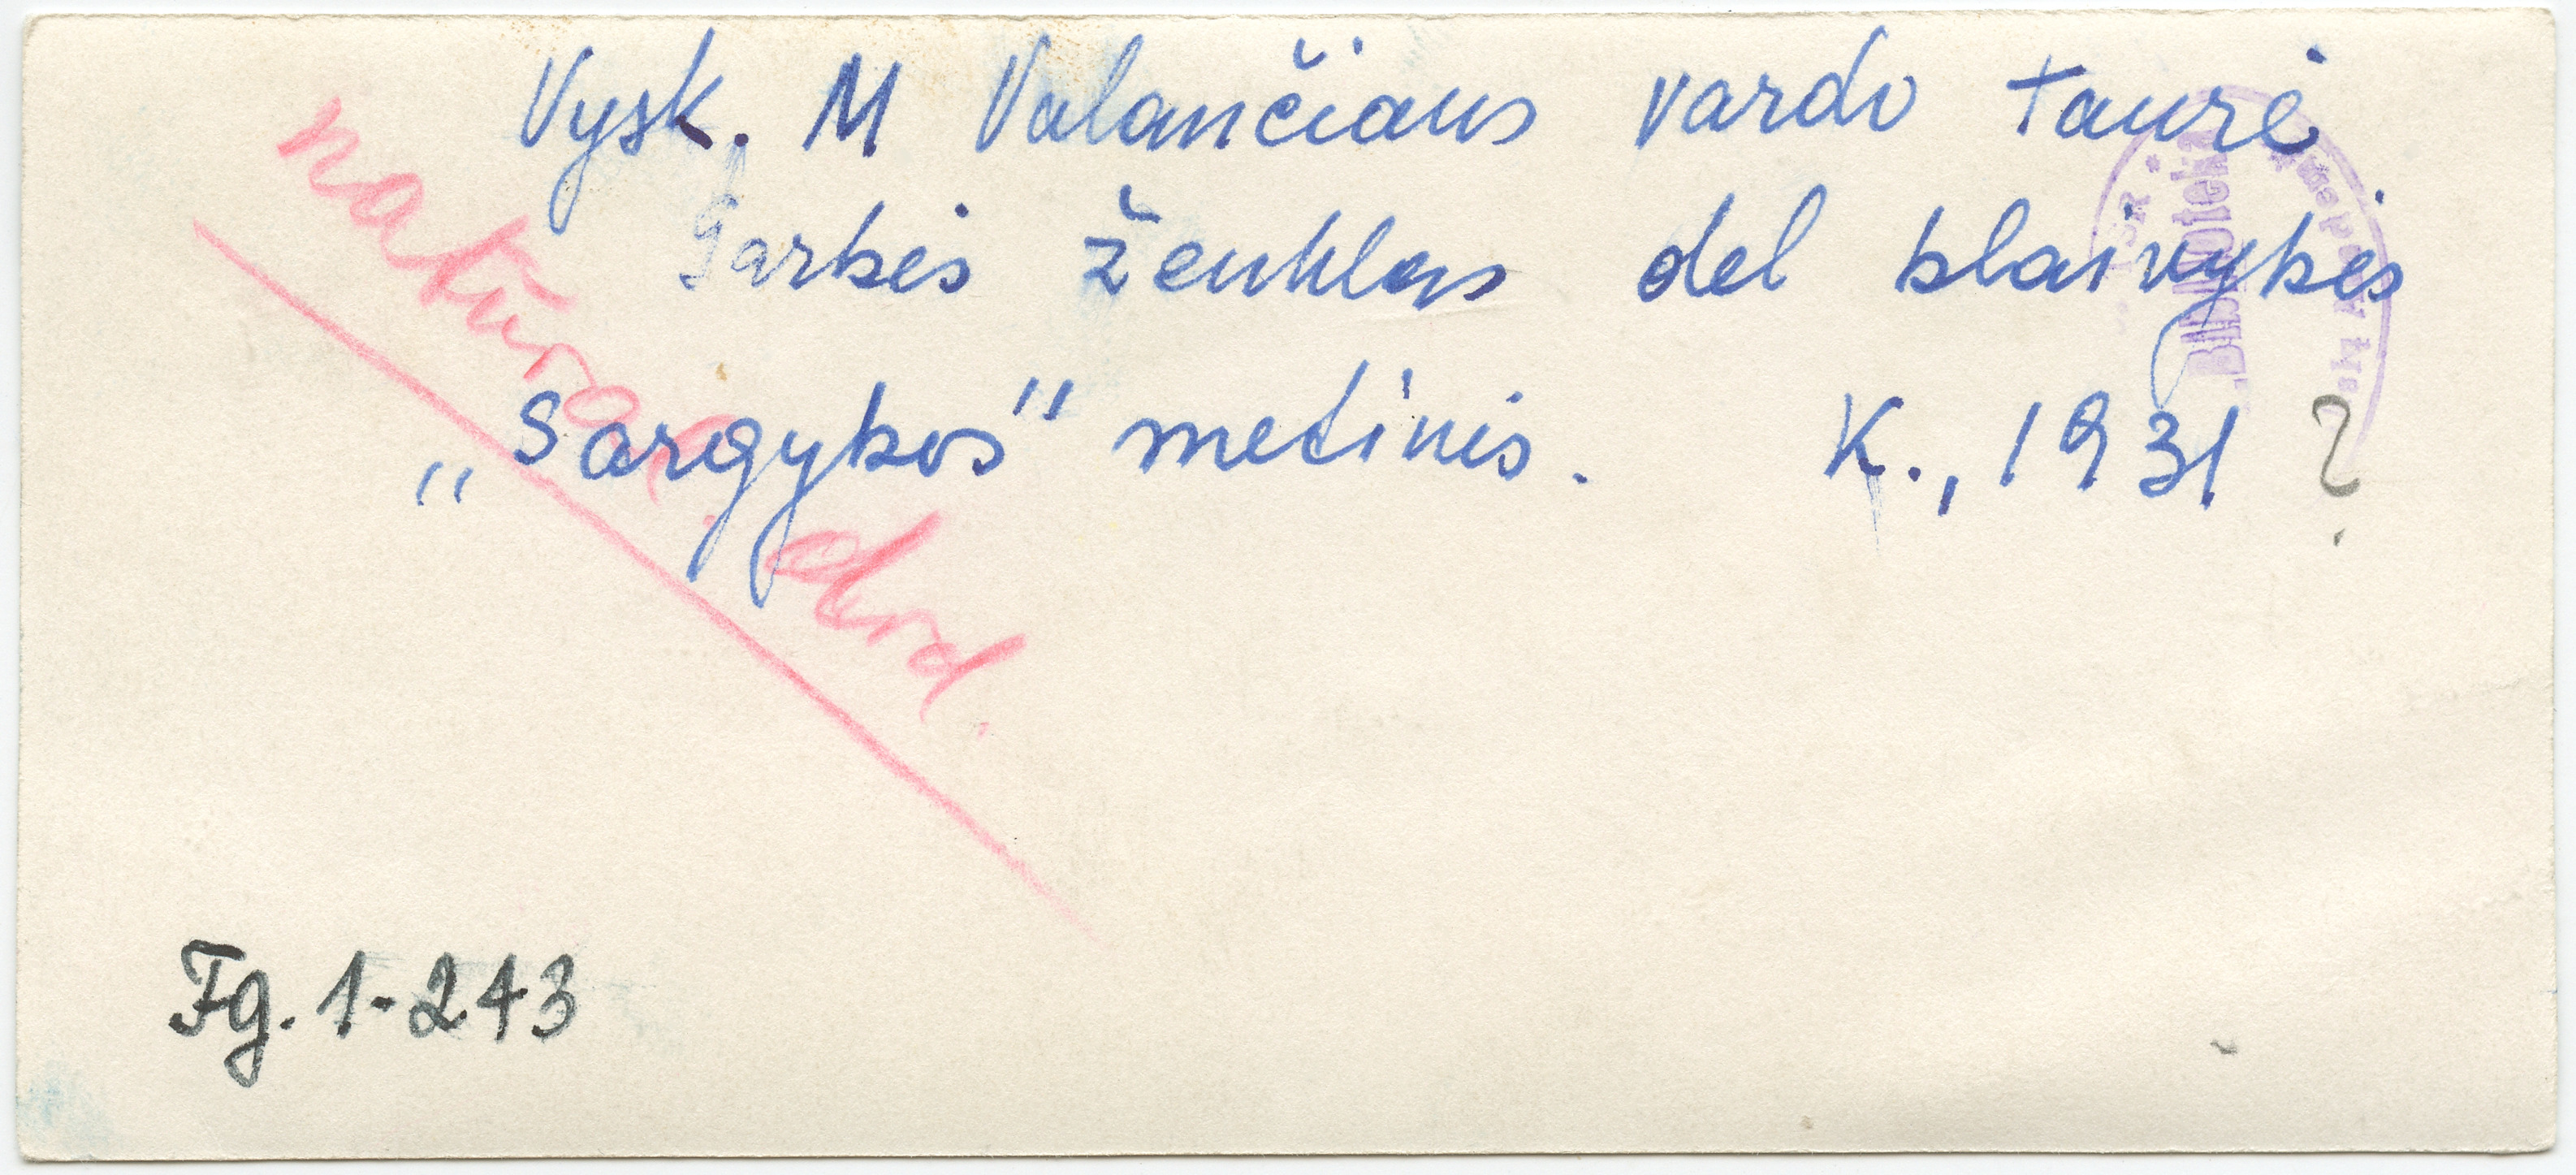 Vysk. M Valančiaus vardo taurė
Garbės ženklas del blaivybės
„Sargybos" metinis. K., 1931 ?
natūral. dyd.
Fg. 1-243
Biblioteka